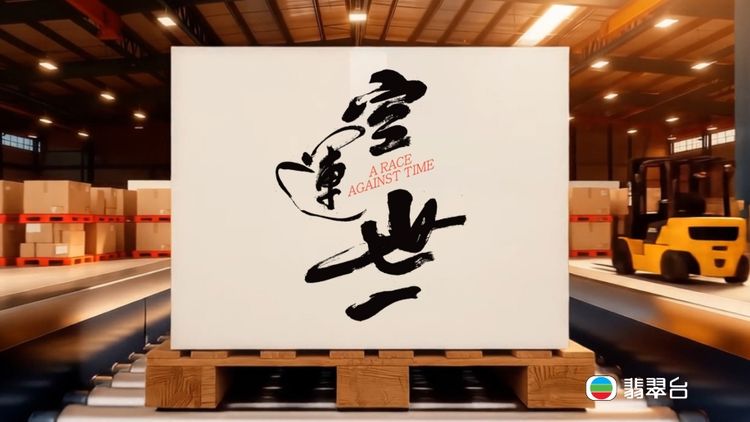 空運世一
A RACE
AGAINST TIME
翡翠台